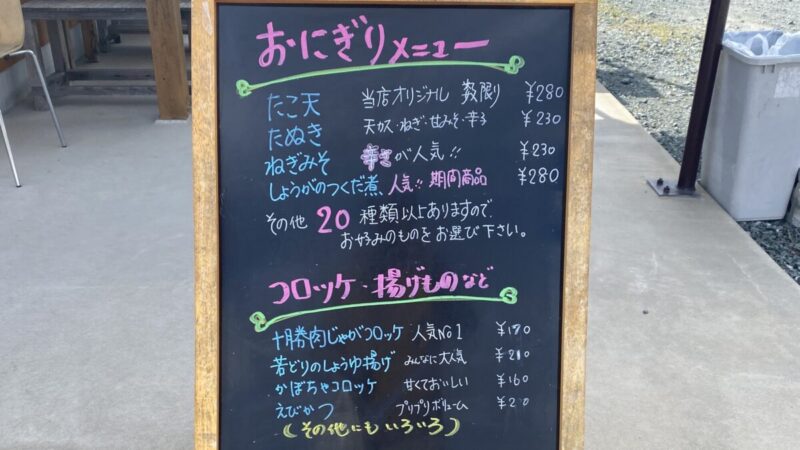 おにぎりメニュー
たこ天 当店オリジナル 数限り ¥280
たぬき 天カス・ねぎ・甘みそ・辛子 ¥230
ねぎみそ 辛さが人気!! ¥230
しょうがのつくだ煮、人気!! 期間商品 ¥280
その他 20 種類以上ありますので、
お好みのものをお選び下さい。
コロッケ・揚げものなど
十勝肉じゃがコロッケ 人気No1 ¥170
若どりのしょうゆ揚げ みんなに大人気 ¥210
かぼちゃコロッケ 甘くておいしい ¥160
えびかつ プリプリボリューム
(その他にもいろいろ)